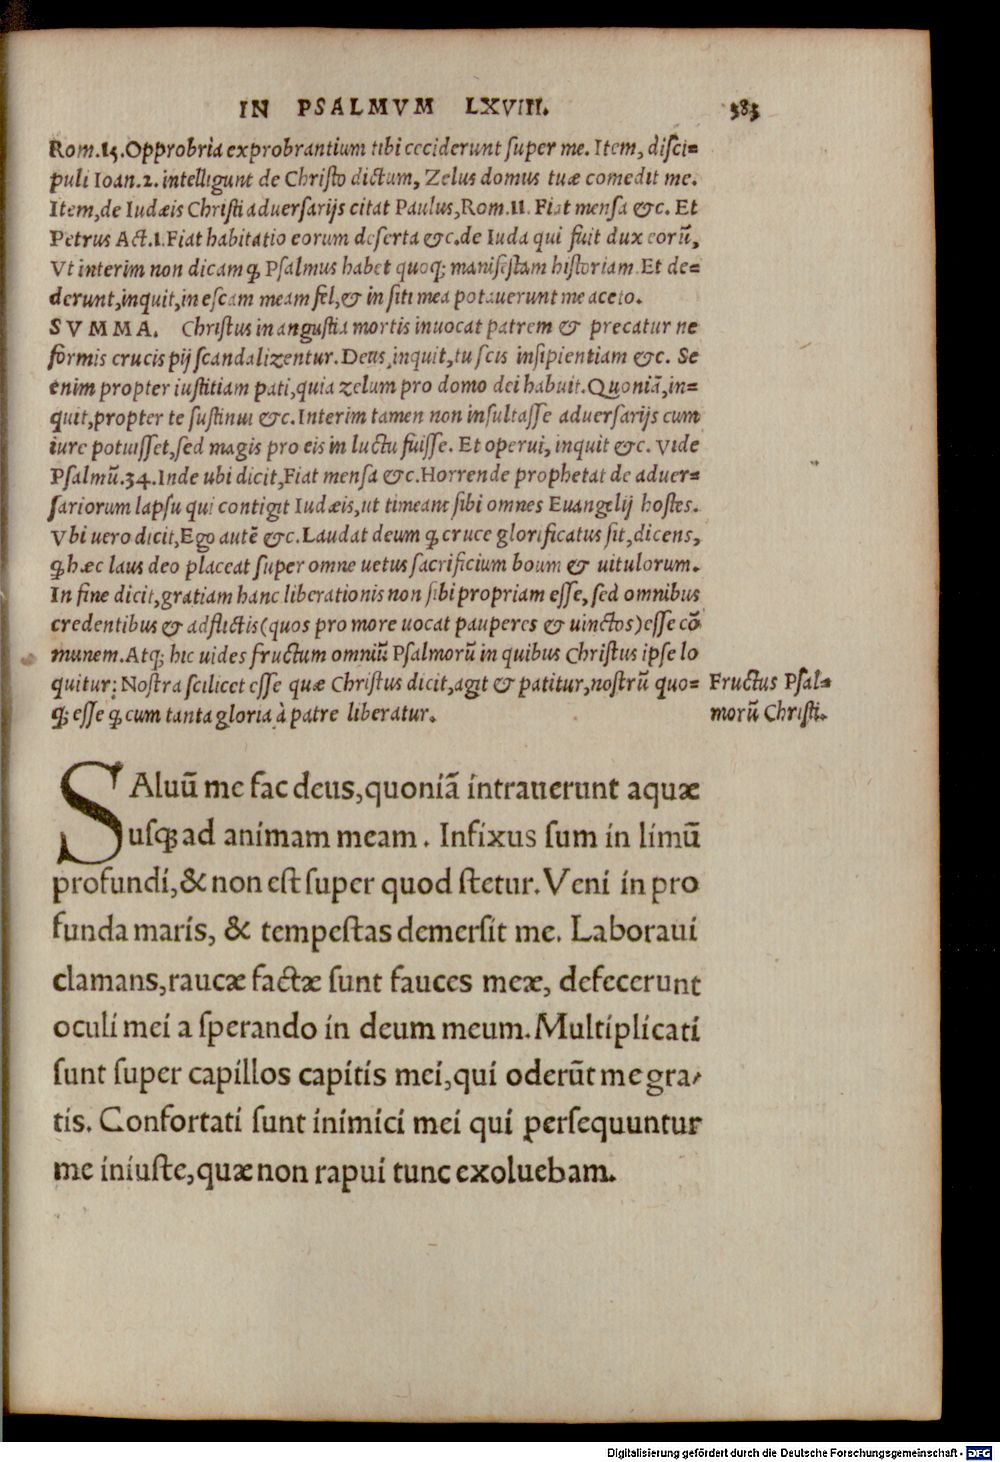 IN PSALMVM LXVIII. 383
Rom.15.Opprobria exprobrantium tibi ceciderunt ſuper me. Item, diſci=
puli Ioan.2. intelligunt de Chriſto dictum, Zelus domus tuæ comedit me.
Item, de Iudæis Chriſti aduerſarijs citat Paulus, Rom.11. Fiat menſa &c. Et
Petrus Act.1.Fiat habitatio eorum deſerta &c.de Iuda qui fuit dux eorū,
Vt interim non dicam ꝙ Pſalmus habet quoq; manifeſtam hiſtoriam. Et de=
derunt,inquit,in eſcam meam fel,& in ſiti mea potauerunt me aceto.
SVMMA. Chriſtus in anguſtia mortis inuocat patrem & precatur ne
formis crucis pij ſcandalizentur. Deus, inquit, tu ſcis inſipientiam &c. Se
enim propter iuſtitiam pati,quia zelum pro domo dei habuit. Quoniā,in=
quit,propter te ſuſtinui &c. Interim tamen non inſultaſſe aduerſarijs cum
iure potuiſſet,ſed magis pro eis in luctu fuiſſe. Et operui, inquit &c. Vide
Pſalmū.34.Inde ubi dicit,Fiat menſa &c.Horrende prophetat de aduer=
ſariorum lapſu qui contigit Iudæis,ut timeant ſibi omnes Euangelij hoſtes.
Vbi uero dicit,Ego autē &c.Laudat deum ꝙ cruce glorificatus ſit,dicens,
ꝙ hæc laus deo placeat ſuper omne uetus ſacrificium boum & uitulorum.
In fine dicit,gratiam hanc liberationis non ſibi propriam eſſe, ſed omnibus
credentibus & adflictis(quos pro more uocat pauperes & uinctos)eſſe cō
munem.Atq; hic uides fructum omniū Pſalmorū in quibus Chriſtus ipſe lo
quitur: Noſtra ſcilicet eſſe quæ Chriſtus dicit,agit & patitur,noſtrū quo=
q; eſſe ꝙ cum tanta gloria à patre liberatur.
Fructus Pſal=
morū Chriſti.
SAluū me fac deus,quoniā intrauerunt aquæ
uſq; ad animam meam. Infixus ſum in limū
profundi,& non eſt ſuper quod ſtetur. Veni in pro
funda maris, & tempeſtas demerſit me. Laboraui
clamans,raucæ factæ ſunt fauces meæ, defecerunt
oculi mei a ſperando in deum meum. Multiplicati
ſunt ſuper capillos capitis mei,qui oderūt me gra⸗
tis. Confortati ſunt inimici mei qui perſequuntur
me iniuſte,quæ non rapui tunc exoluebam.
Digitalisierung gefördert durch die Deutsche Forschungsgemeinschaft - DFG